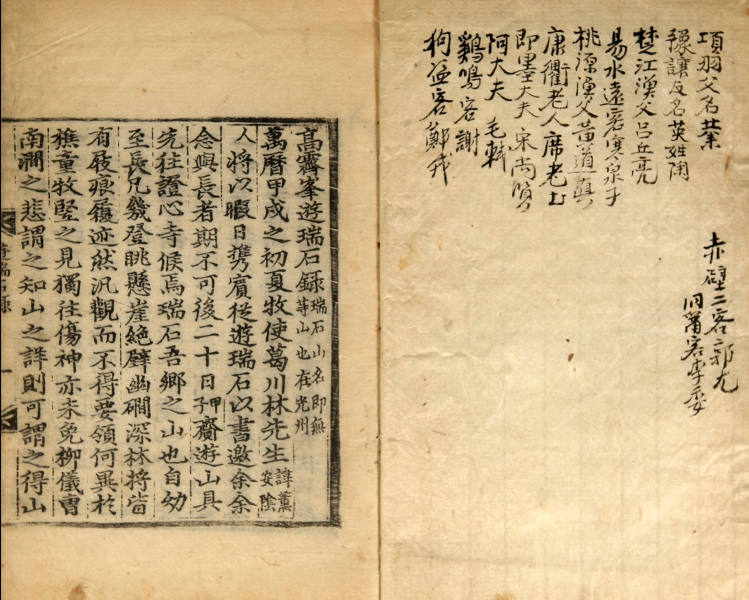 項羽父名葉
豫讓友名英姓
楚江漁父呂丘亮
易水遠客寒泉子
桃源漁父黃道真
康衢老人席老
即墨大夫宋尚
阿大夫 毛
鷄鳴客謝
狗盜客鄭
赤壁二客郭尤
洞簫客李委
高霽峯遊瑞石錄瑞石山名即無
等山也在光州
萬曆甲戌之初夏牧使葛川林先生諱薰
安陰
人將以暇日携賓從遊瑞石以書邀余余
念與長者期不可後二十日甲
子齎遊山具
先往證心寺候焉瑞石吾鄉之山也自幼
至長凡幾登眺懸崖絶壁幽磵深林將皆
有屐痕履迹然汎觀而不得要領何異於
樵童牧竪之見獨往傷神亦未免柳儀曹
南澗之悲謂之知山之詳則可謂之得山
遊瑞石錄
一